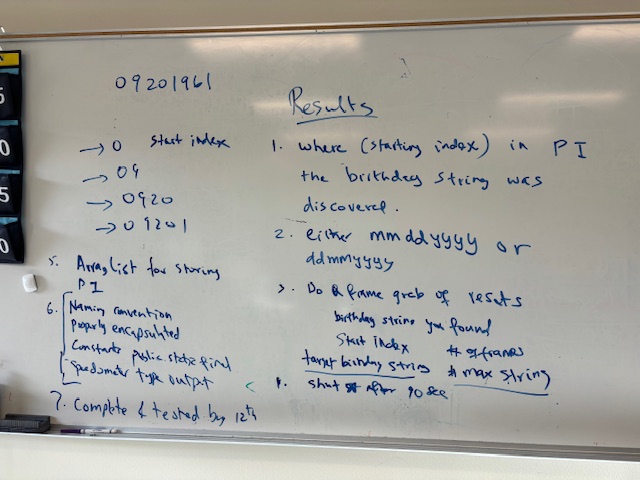 09201961
→ 0 start index
→ 09
→ 0920
→ 09201
5. Arraylist for storing
PI
6. Naming convention
Properly encapsulated
Constants public static final
Speedometer type output
7. Complete & tested by 12th
Results
1. where (starting index) in PI
the birthday string was
discovered.
2. either mmddyyyy or
ddmmyyyy
3. Do a frame grab of
birthday string you found
Start index # of frames
target birthday string # max string
4. shut after 90 sec
5
0
5
0